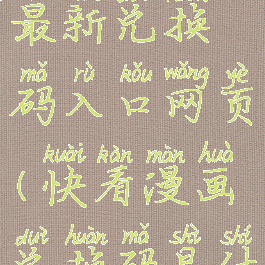 最新兑换
mǎ rù kǒu wǎng yè
码入口网页
kuài kàn màn huà
(快看漫画
duì huàn mǎ shì shí
兑换码是什